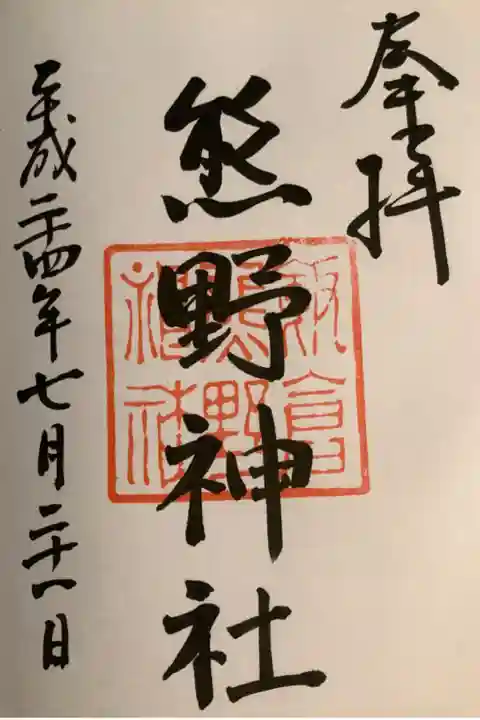 奉拝
熊野神社
平成二十四年七月二十一日
飯倉
熊野
神社